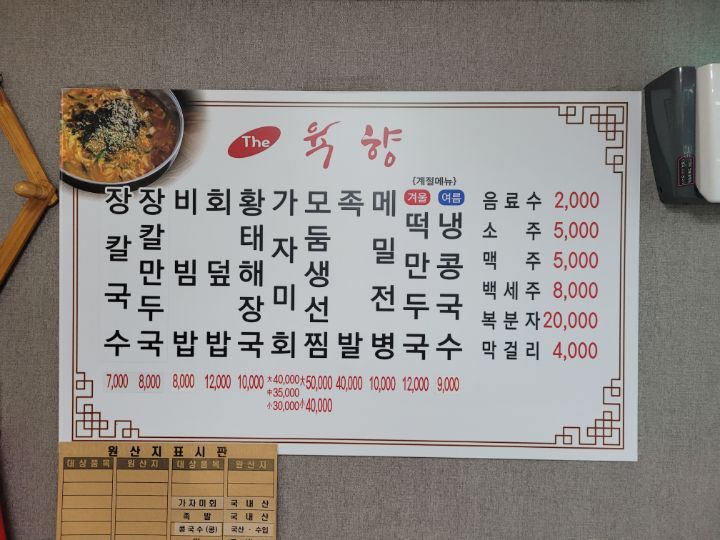 The 육향
{계절메뉴}
겨울 여름
장칼국수 7,000
장칼만두국 8,000
비빔밥 8,000
회덮밥 12,000
황태해장국 10,000
가자미회 大40,000 中35,000 小30,000
모둠생선찜 大50,000 小40,000
족발 40,000
메밀전병 10,000
떡만두국 12,000
냉콩국수 9,000
음료수 2,000
소주 5,000
맥주 5,000
백세주 8,000
복분자 20,000
막걸리 4,000
원산지표시판
대상품목 원산지 대상품목 원산지
가자미회 국내산
족발 국내산
콩국수(콩) 국산·수입